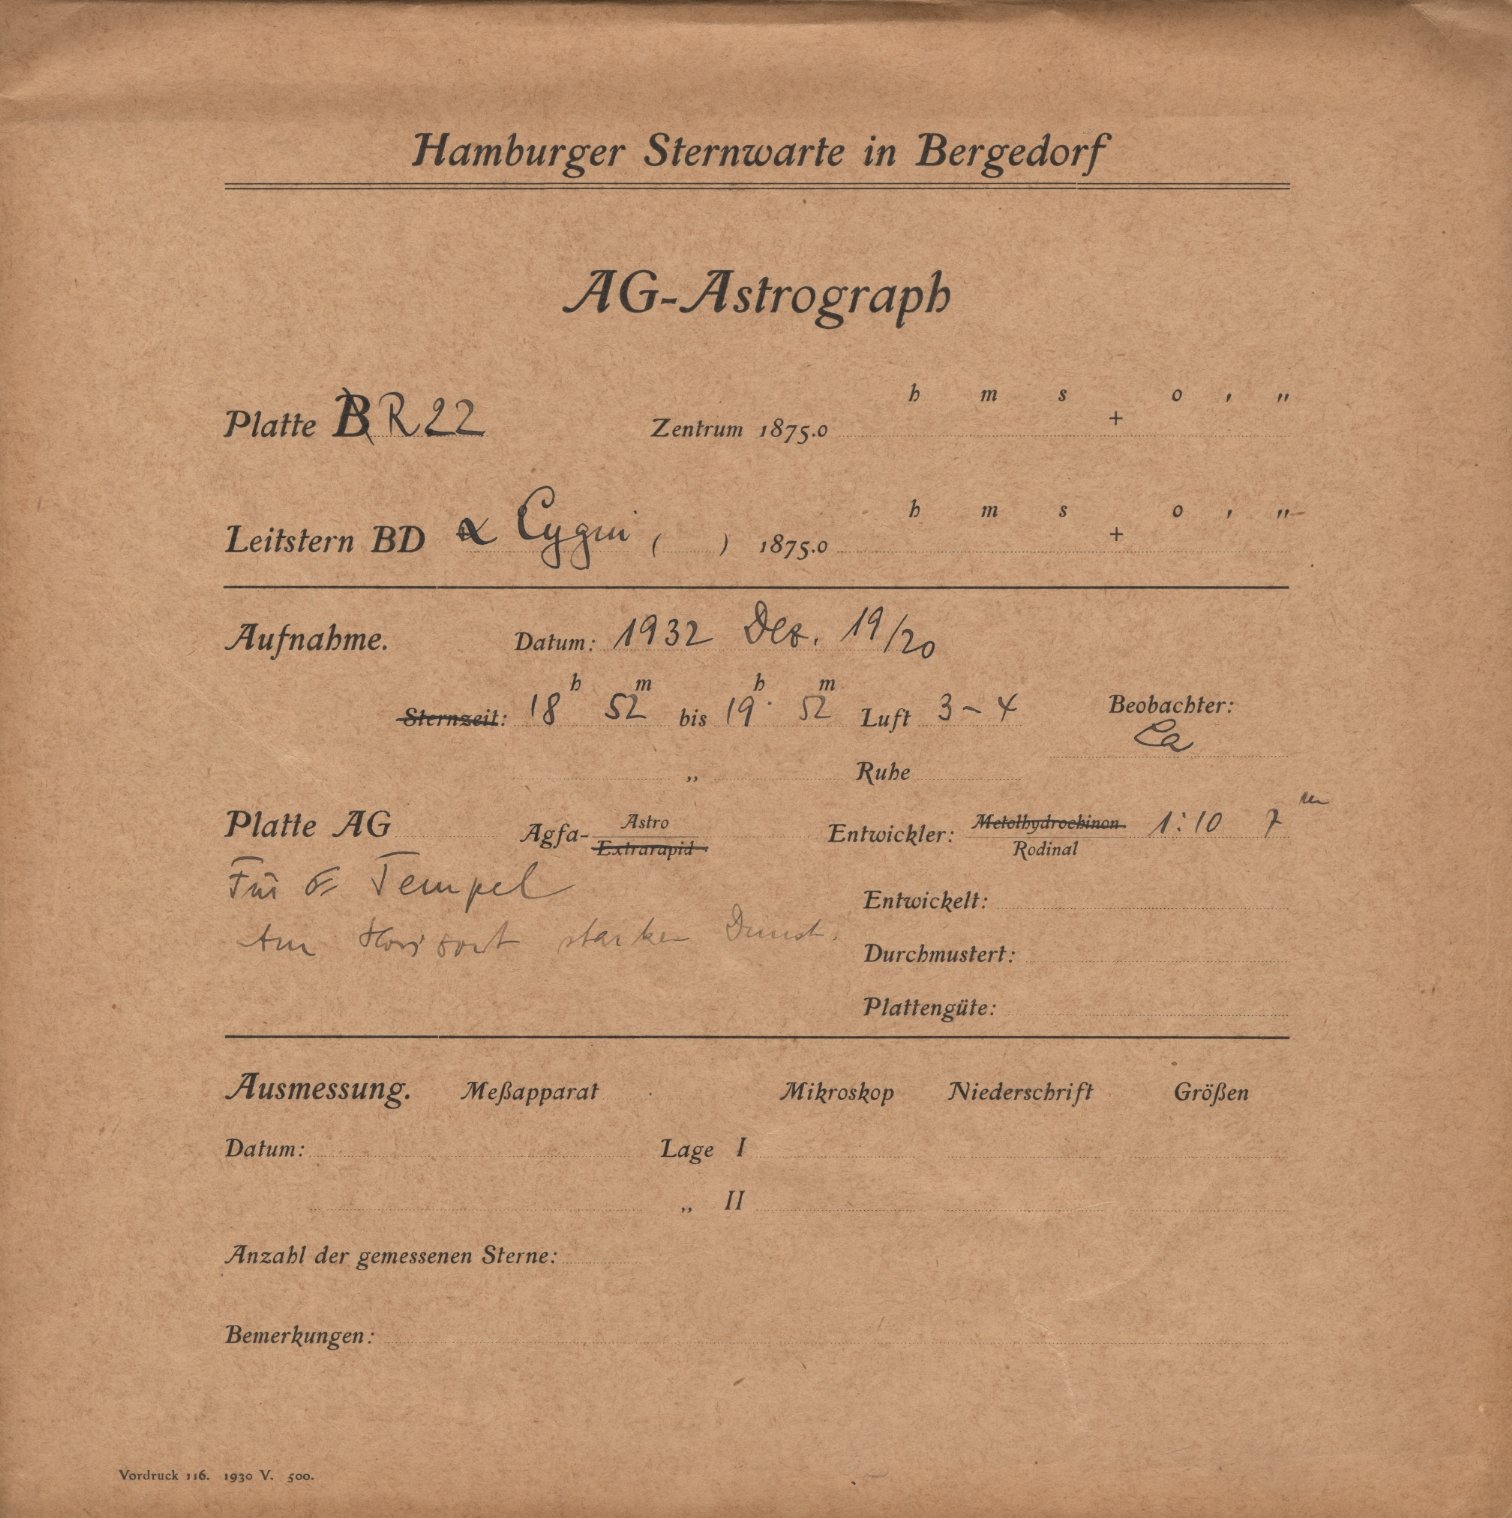 Hamburger Sternwarte in Bergedorf
AG-Astrograph
Platte BR22 Zentrum 1875.0 h m s + o , ,,
Leitstern BD α Cygni ( ) 1875.0 h m s + o , ,,
Aufnahme. Datum: 1932 Dez. 19/20
Sternzeit: 18 h 52 m bis 19 h 52 m Luft 3 – 4 Beobachter:
,, Ruhe
Platte AG Agfa- Astro Extrarapid Entwickler: Metolhydrochinon Rodinal 1:10 7 m
Für Tempel
Entwickelt:
Am Horizont starker Dunst.
Durchmustert:
Plattengüte:
Ausmessung. Meßapparat Mikroskop Niederschrift Größen
Datum: Lage I
,, II
Anzahl der gemessenen Sterne:
Bemerkungen:
Vordruck 116. 1930 V. 500.